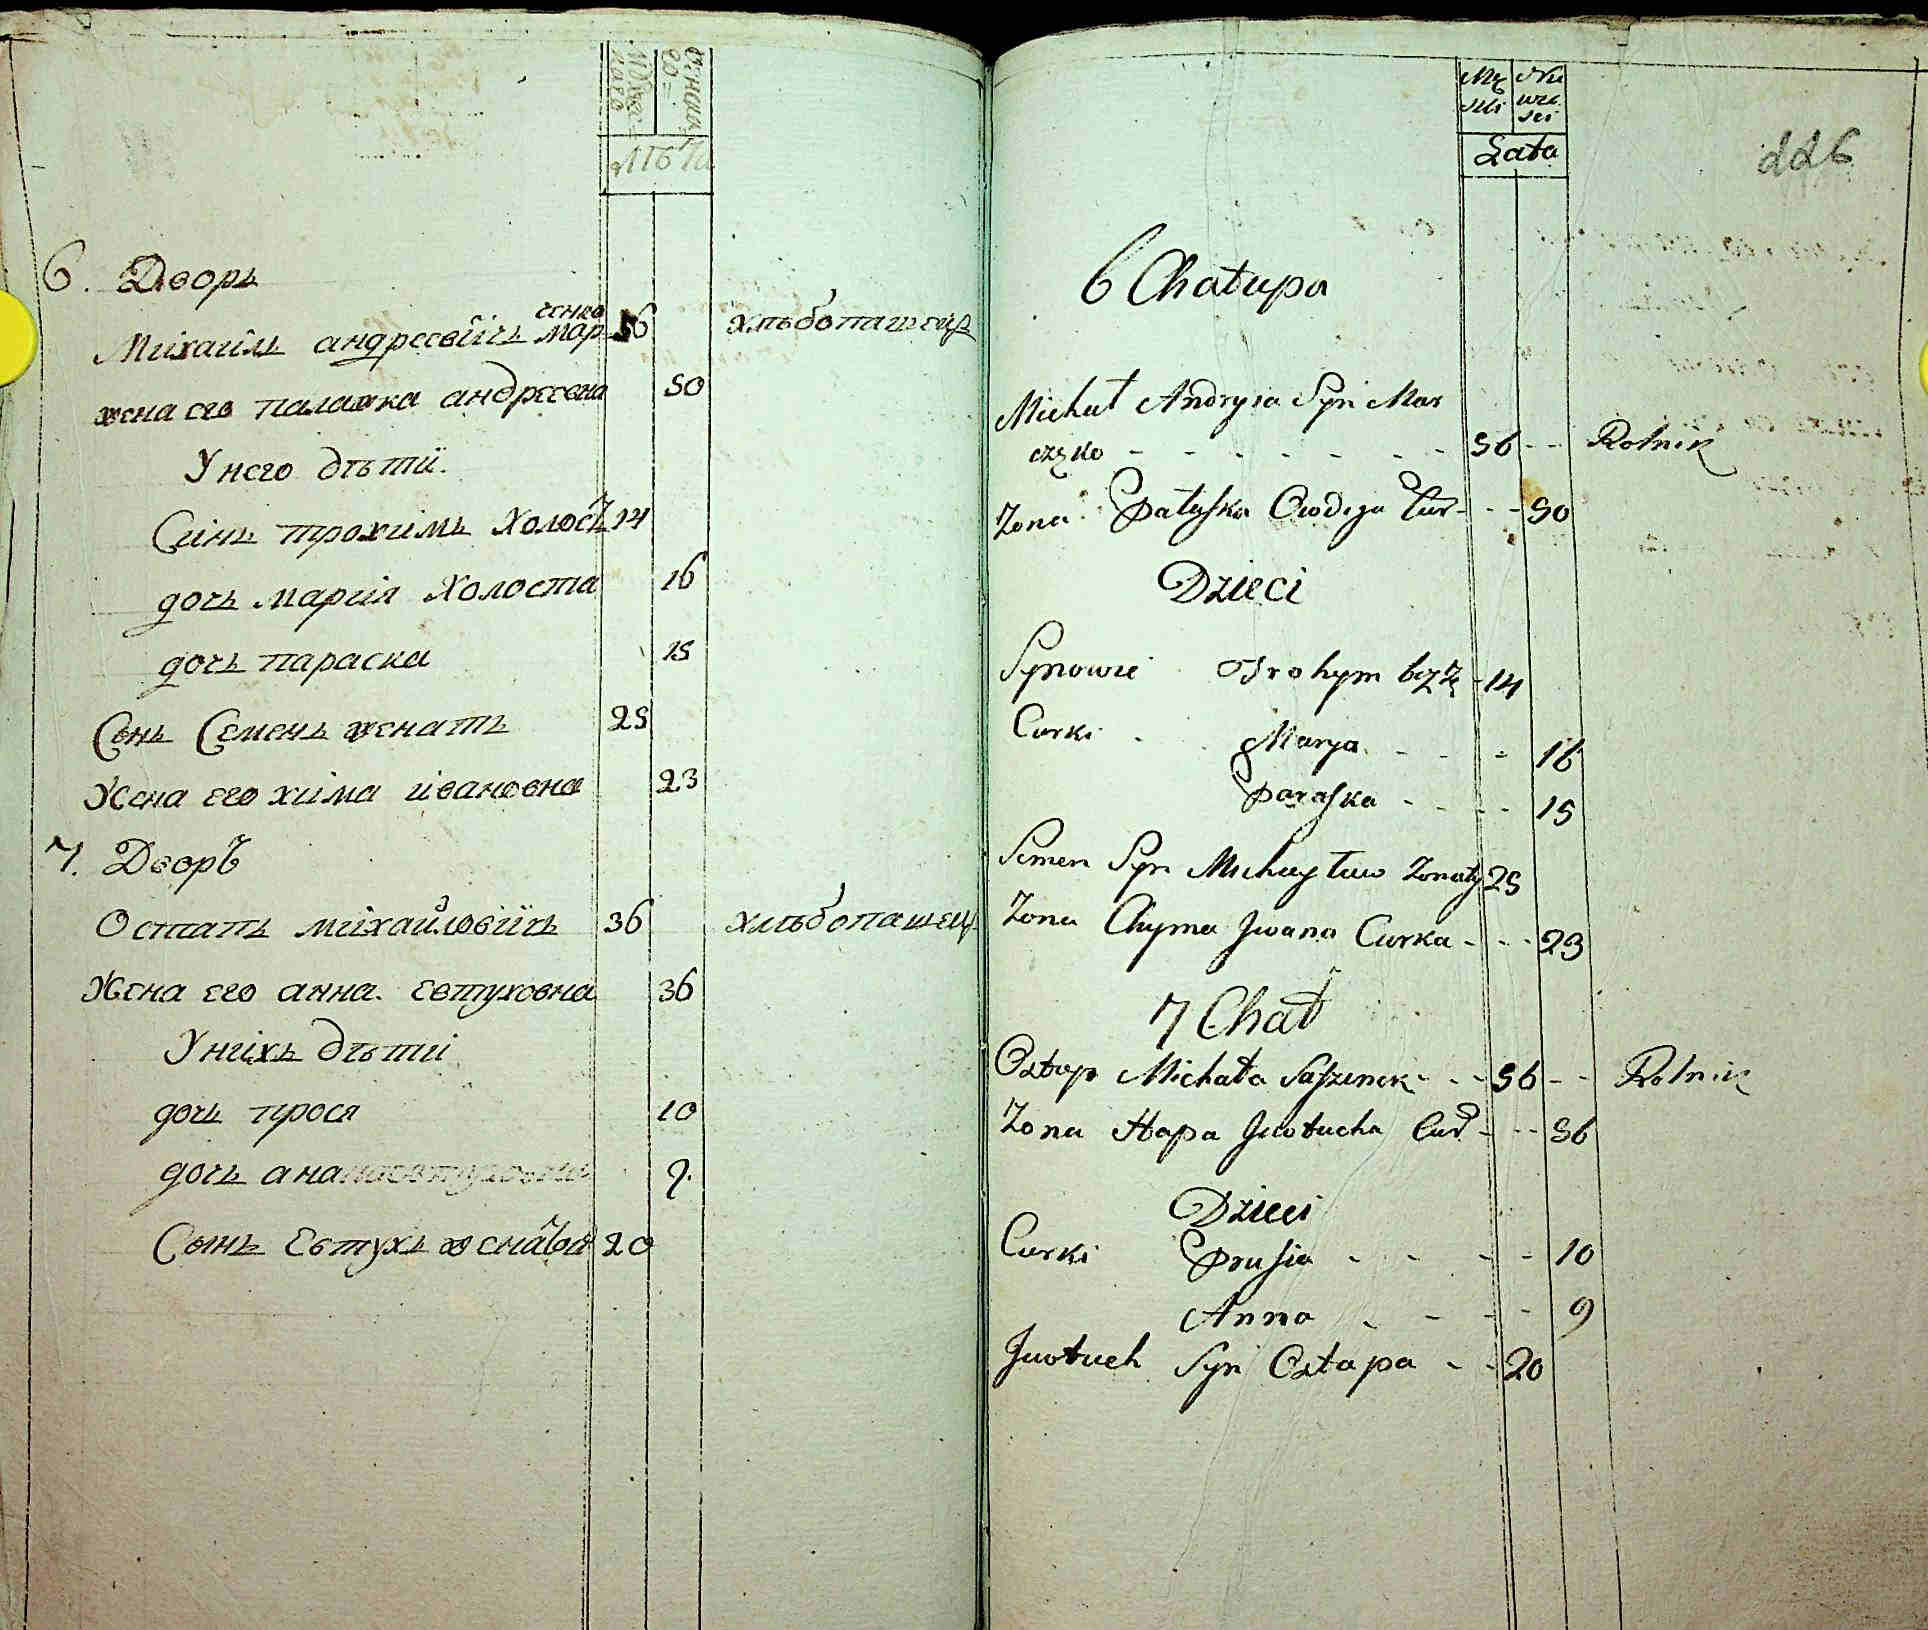 Мужеска
Женска
го=
Лѣта
6. Дворъ
ченко
Михаилъ андреевичъ мар 56 хлѣбопашецъ
жена его палажка андреевна 50
У него дѣти.
Синъ трохимъ Холостъ 14
дочь мария Холоста 16
дочь параска 15
Сынъ Семенъ женатъ 25
Жена его хима ивановна 23
7. Дворъ
Остапъ михайловичъ 36 хлѣбопашецъ
Жена его анна евтуховна 36
У нихъ дѣти
дочь прося 10
дочь ана 9.
Сынъ Евтухъ 20
Mę Nie
ski wie
sci
Lata
226
6 Chałupa
Michał Andryia Syn Mar
częko - - - - - - - 56 - - Rolnik
Żona Pałaſka Cur - - - 50
Dzieci
Synowie Trohym bez Ż - 14
Curki - - Marya - - - 16
Paraſka - - - - 15
Semen Syn Michayław Żonaty 25
Żona Chyma Jwana Curka - - - 23
7 Chał
Ostap Michała - - - 36 - - Rolnik
Żona Hapa Jwtucha Cur - - - 36
Dzieci
Curki Pruſia - - - - 10
Anna - - - - 9
Jwtuch Syn Ostapa - - 20